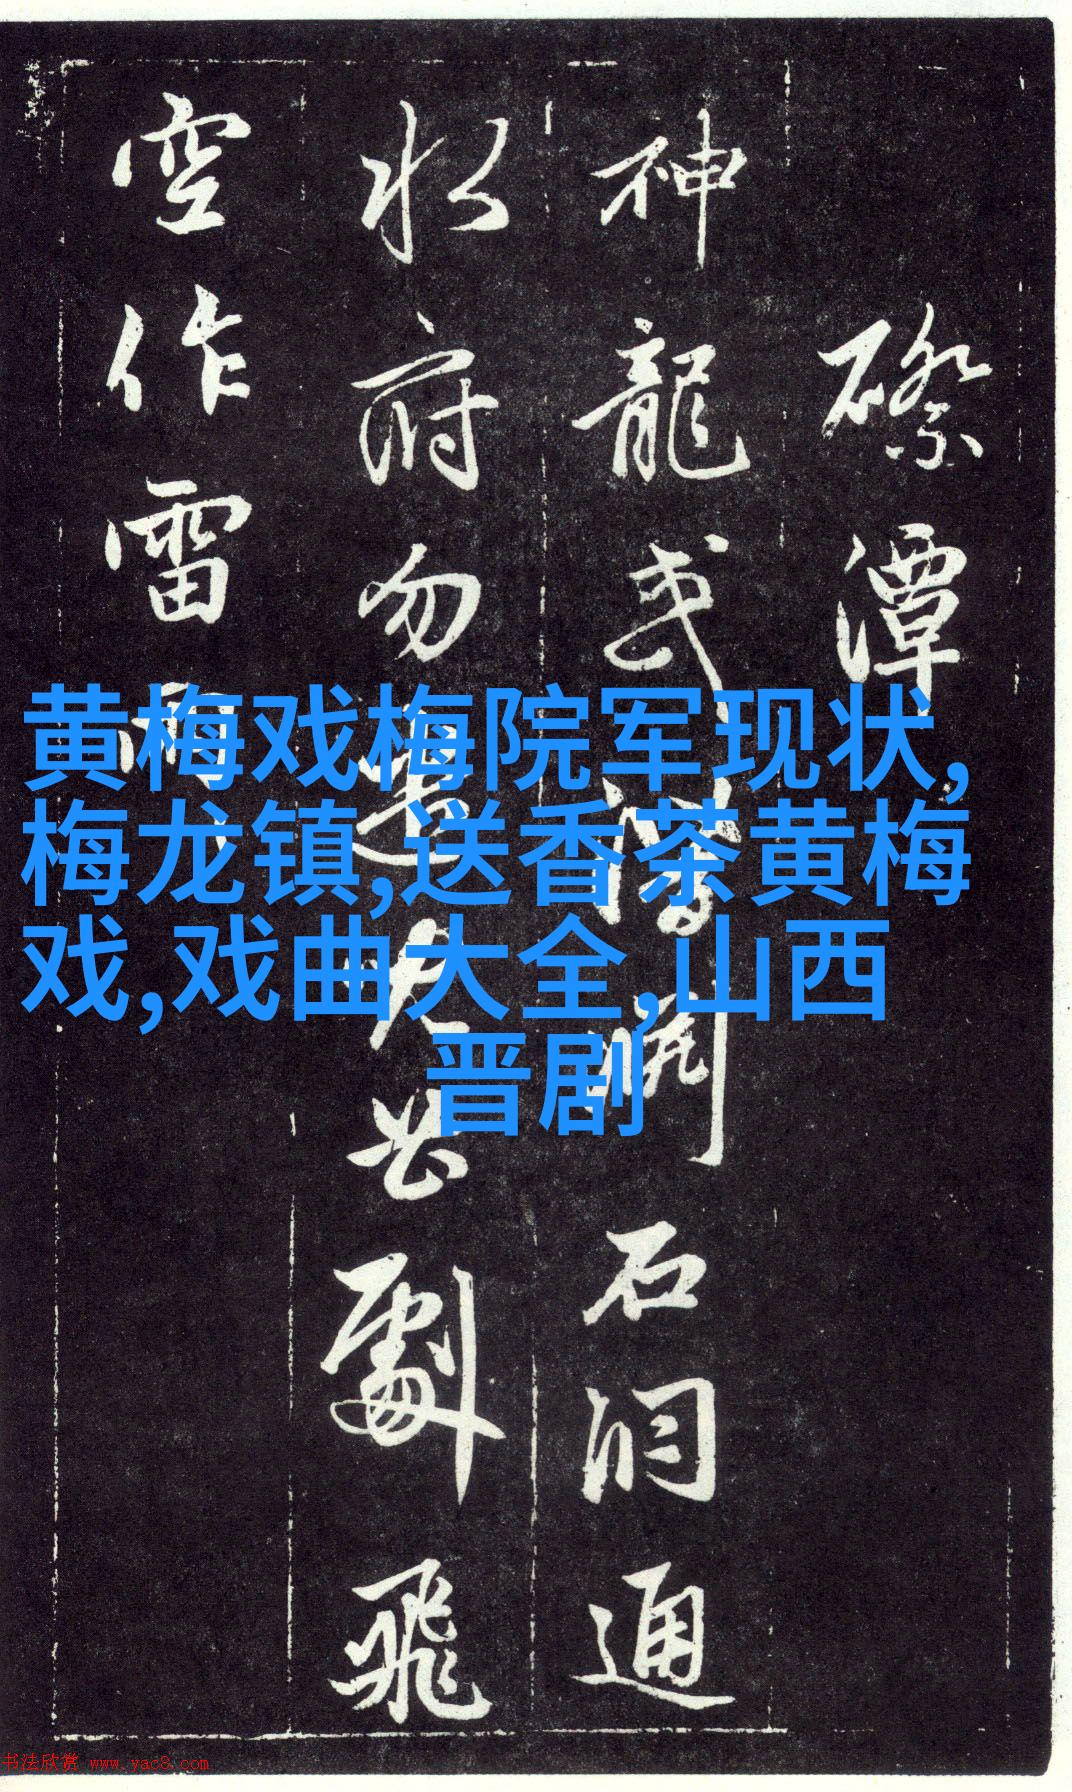 磜潭
神龍或潛淵石洞通
水府勿
空作雷雨
黄梅戏梅院军现状,
梅龙镇,送香茶黄梅
戏,戏曲大全,山西
晋剧
书法欣赏 www.yac8.com